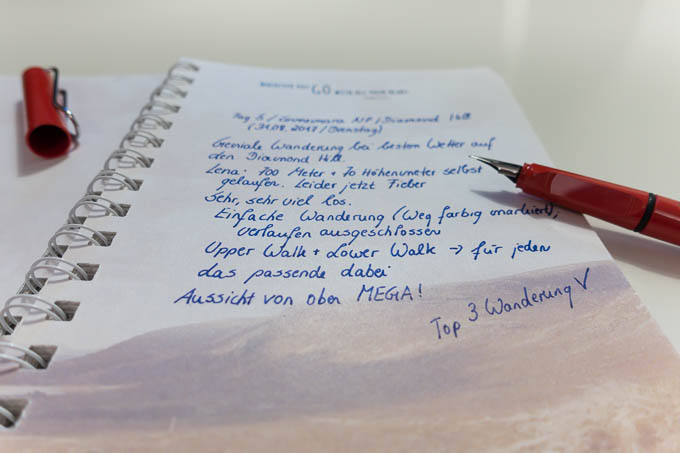 WHEREVER YOU GO WITH ALL YOUR HEART
Tag 5 / Connemara NP / Diamond Hill
(31.08.2017 / Dienstag)
Geniale Wanderung bei besten Wetter auf
den Diamond Hill.
Lena: 700 Meter + 70 Höhenmeter selbst
gelaufen. Leider jetzt Fieber
Sehr, sehr viel los.
Einfache Wanderung (Weg farbig markiert),
verlaufen ausgeschlossen
Upper Walk + Lower Walk → für jeden
das passende dabei
Aussicht von oben MEGA!
Top 3 Wanderung ✓